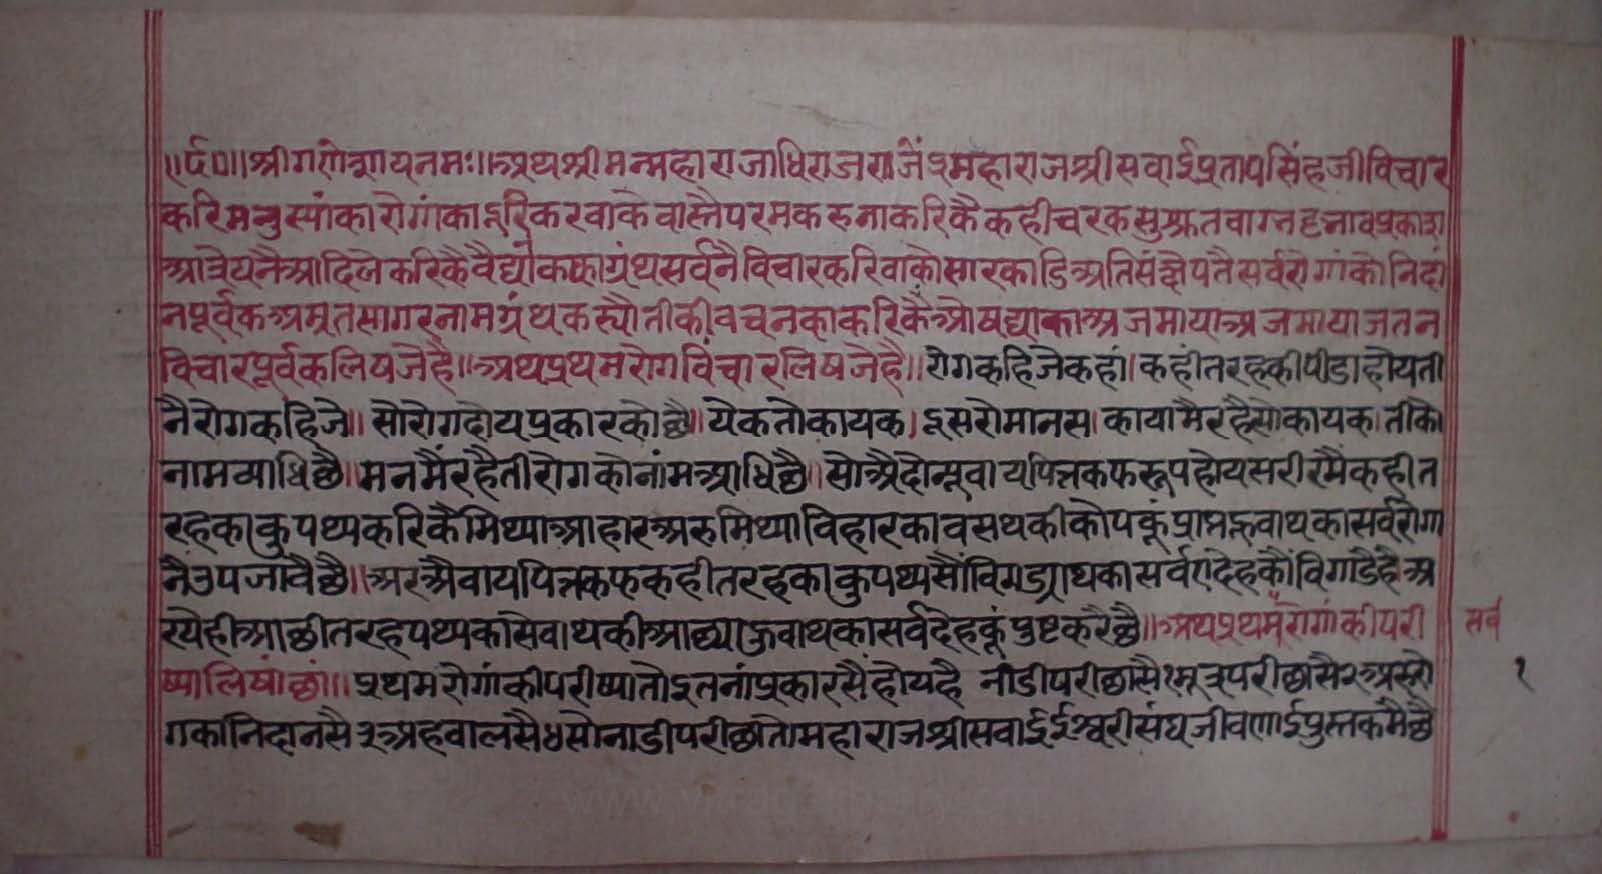 ॥र्द०॥श्रीगणेशायनमः॥अथश्रीमन्महाराजाधिराजराजेंद्रमहाराजश्रीसवाईप्रतापसिंहजीविचार
करिमनुस्यांकारोगांकादूरिकरवाकैवास्तैपरमकरुनाकरिकैकहीचरकसुश्रुतवाग्भट्टभावप्रकाश
आत्रेयनैआदिलेकरिकैवैद्यांककाग्रंथसर्वनैविचारकरिवाकोसारकाडिअतिसंक्षेपतैसर्वरोगांकोनिदां
नपूर्वकअमृतसागरनामग्रंथकस्यौतीकीवचनकाकरिकैओषद्याकाअजमायाअजमायाजतन
विचारपूर्वकलिषजेहै॥अथप्रथमरोगविचारलिषजेहै॥रोगकहिजेकहां।कहींतरहकीपीडाहोयती
नैरोगकहिजे॥सोरोगदोयप्रकारकोछै॥येकतोकायक।दूसरोमानस।कायामैरहैसोकायक।तीको
नामव्याधिछै॥मनमैंरहैतीरोगकोनांमआधिछै॥सोअैदोन्यूवायपित्तकफरूपहोयसरीरमैंकहीत
रहकाकुपथ्यकरिकैमिथ्याआहारअरुमिथ्याविहारकावसथकीकोपकूंप्राप्तहूवाथकासर्वरोगा
नैउपजावैछै॥अरअैवायपित्तकफकहीतरहकाकुपथ्यसौंविगड्याथकासर्वएदेहकौंविगाडैहैअ
रयेहीआछीतरहपथ्यकासेवाथकीआछ्याहूवाथकासर्वदेहकूंपुष्टकरैछै॥अथप्रथमरोगांकीपरी
ष्यालिषांछां॥प्रथमरोगांकीपरीष्यातोइतनांप्रकारसैंहोयहै नाडीपरीछासै१मूत्रपरीछासै२अररो
गकानिदानसै३अहवालसै४सोनाडीपरीछातोमहाराजश्रीसवाईईश्वरीसंघजीवणाईपुस्तकमैछै
सर्व
१